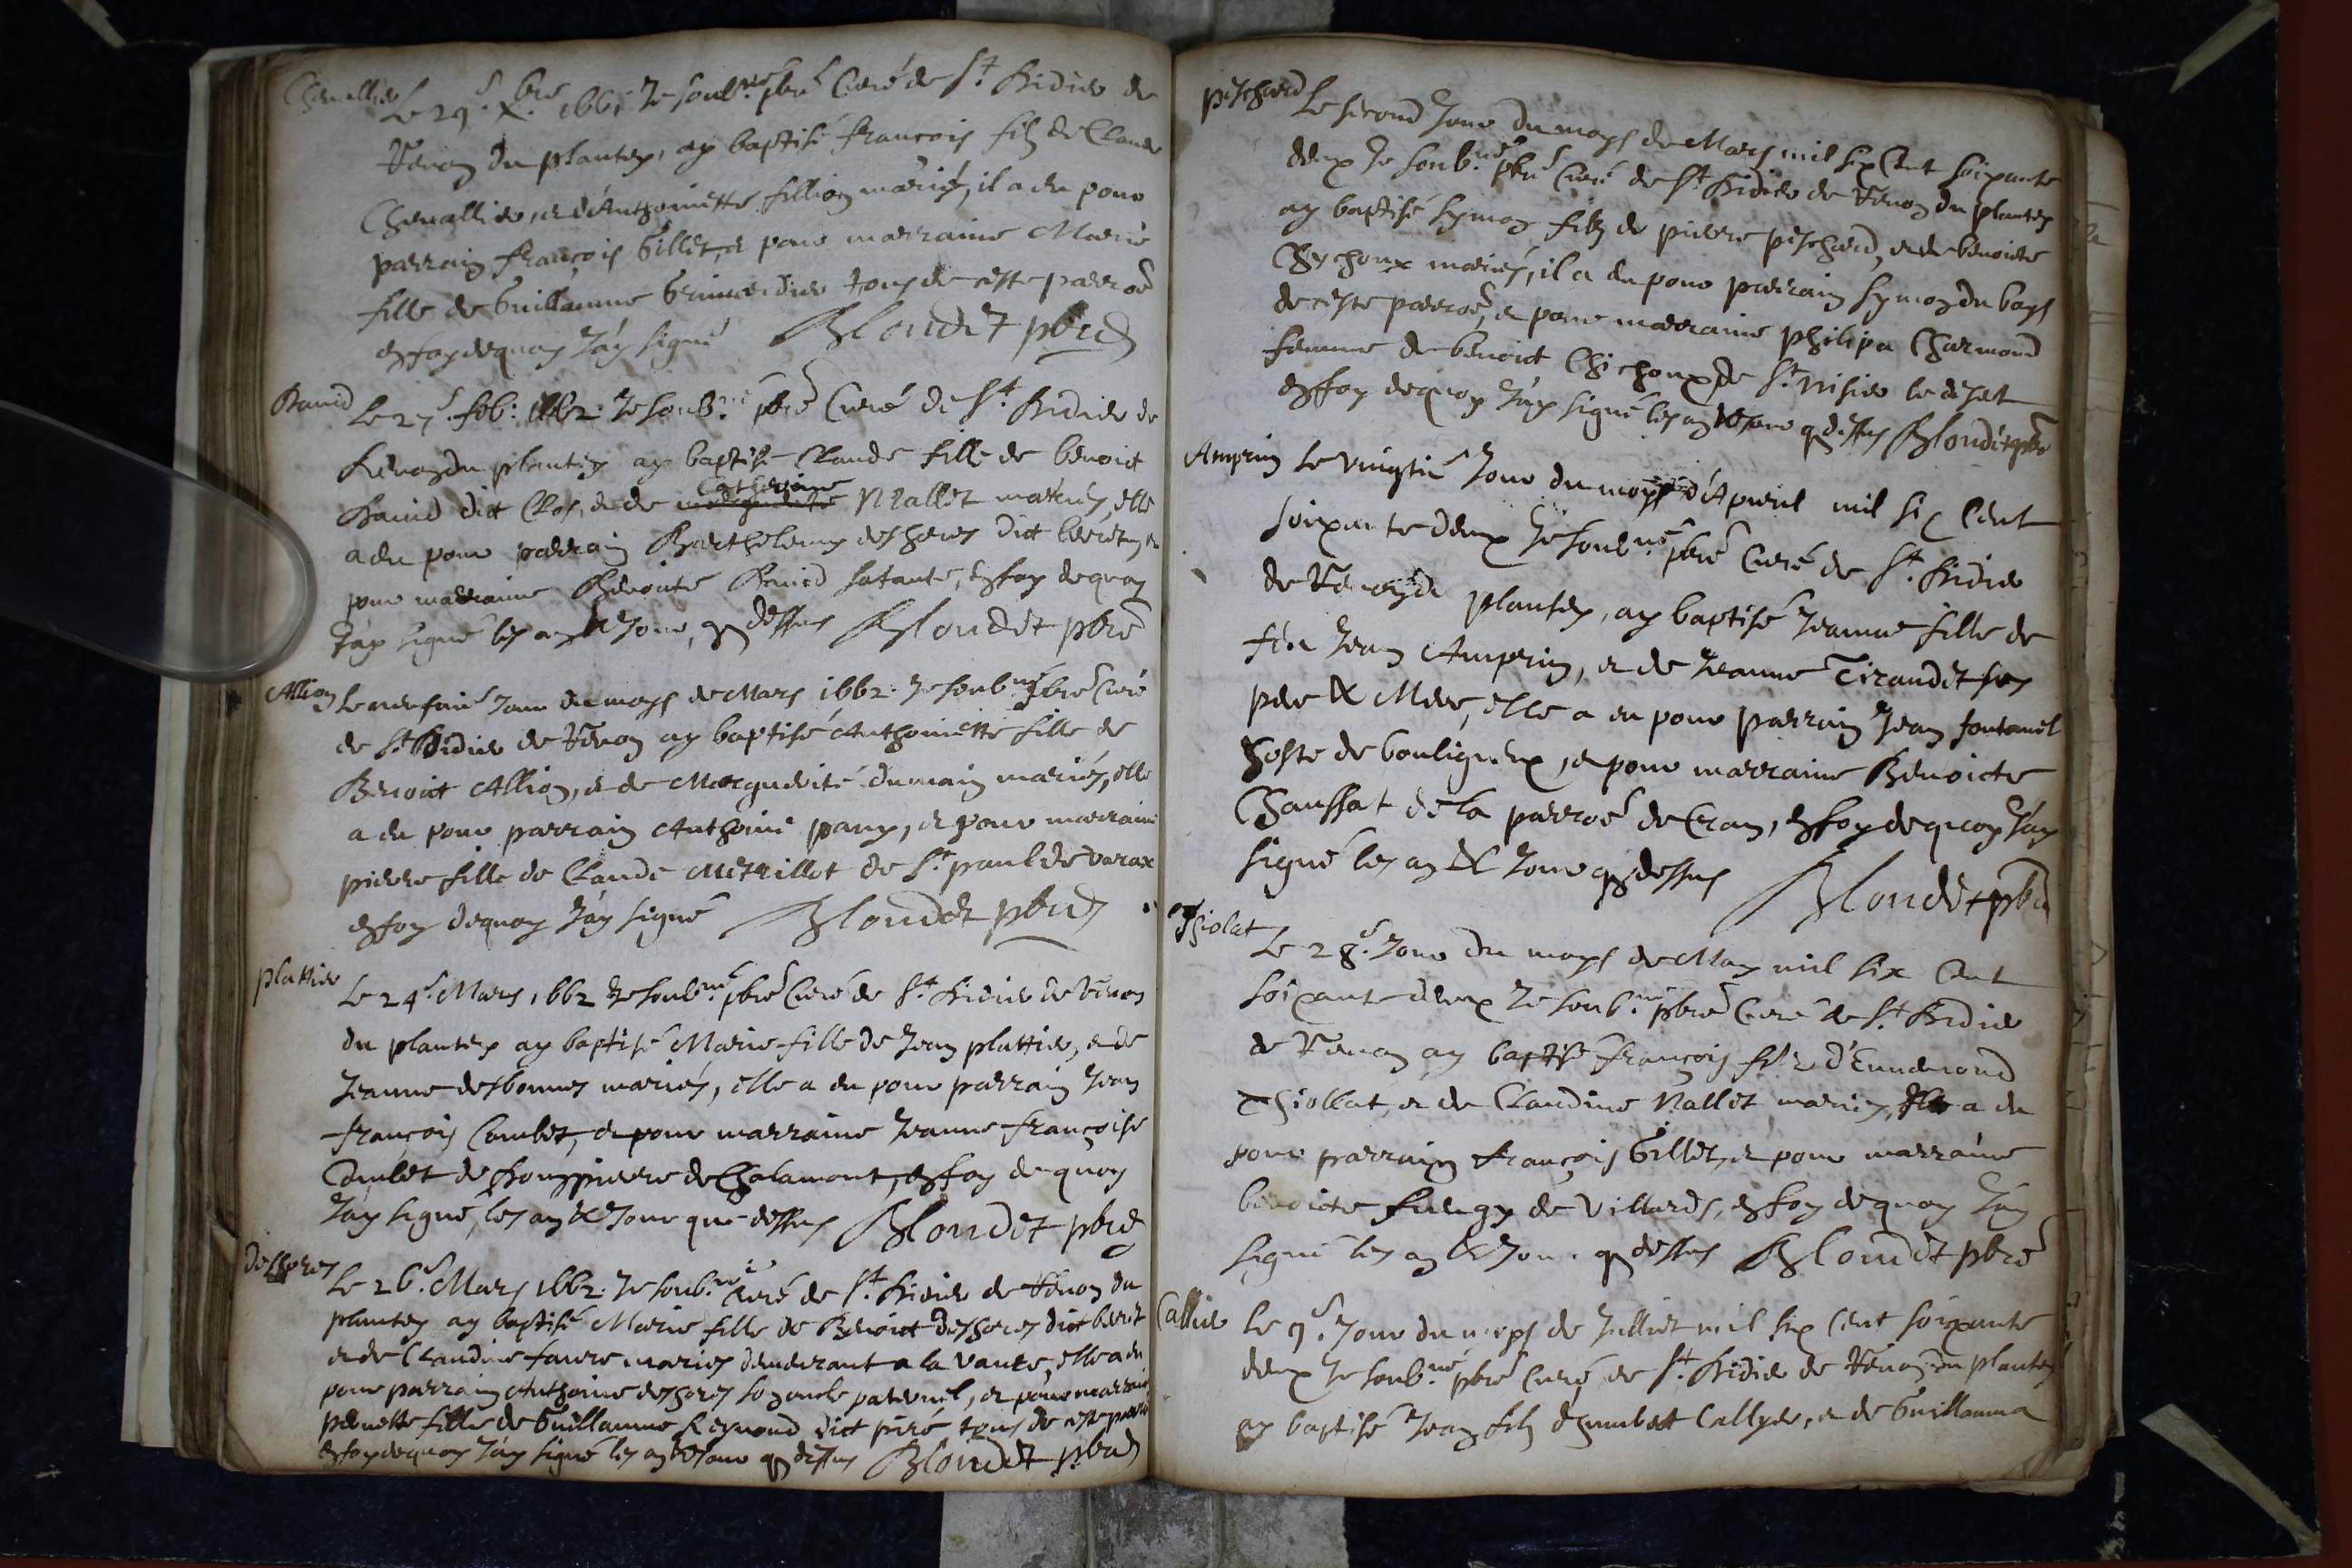 Chevallier
Le 29.e X.bre 1661 Je soub.né pbre Curé de S.t Didier de
Renon du plantey, ay baptisé francois filz de Claude
Chevallier, et d'Anthoinette fillion mariés, il a eu pour
parrain françois Gillet, et pour marraine Marie
fille de Guillaume tous de ceste parroe
en foy de quoy J'ay signé Blondet pbre
David
Le 27.e feb: 1662 Je soub.né pbre Curé de S.t Didier de
Renon du plantey ay baptisé Claude fille de benoict
David dict Clos, et de Catherine Nallet mariés, elle
a eu pour parrain Barthelemy deshores dict et
pour marraine Benoicte David sa tante, en foy de quoy
J'ay signé les an & Jour, q dessus Blondet pbre
Allion
Le Jour du moys de Mars 1662. Je soub.né pbre Curé
de S.t Didier de Renon ay baptisé Anthoinette fille de
Benoict Allion, et de Marguerite dumain mariés, elle
a eu pour parrain Anthoine pany, et pour marraine
pierre fille de Claude de S.t paul de varax
en foy de quoy J'ay signé Blondet pbre
plattier
Le 24.e Mars 1662 Je soub.né pbre Curé de S.t Didier de Renon
du plantey ay baptisé Marie fille de Jean plattier, et de
Jeanne desbonnes mariés, elle a eu pour parrain Jean
françois Combet, et pour marraine Jeanne françoise
Combet de Dompierre de Chalamont, en foy de quoy
J'ay signé, les an & Jour que dessus Blondet pbre
deshores
Le 26.e Mars 1662. Je soub.né Curé de S.t Didier de Renon du
plantey ay baptisé Marie fille de Benoict Deshores dict beret
et de Claudine faure mariés demeurant a la vaure, elle a eu
pour parrain Anthoine deshores son oncle paternel, et pour marraine
pernette fille de Guillaume Reynoud dict piré, tous de ceste parroe
en foy de quoy J'ay signé les an & Jour q dessus Blondet pbre
peschard
Le second Jour du moys de Mars mil six Cent soixante
deux Je soub.né pbre Curé de S.t Didier de Renon du plantey
ay baptisé Symon filz de pierre peschard, et de benoicte
Chychoux mariés, il a eu pour parrain Symon du boys
de ceste parroe, et pour marraine philipa Charmond
femme de benoict Chichoux de S.t nisier le desert
en foy de quoy J'ay signé les an & Jour q dessus Blondet pbre
Amprin
Le vingtie Jour du moys d'Apvril mil six Cent
soixante deux Je soub.né pbre Curé de S.t Didier
de Renon du plantey, ay baptisé Jeanne fille de
feu Jean Amprin, et de Jeanne Tirandet ses
pere & Mere, elle a eu pour parrain Jean fontanel
hoste de bouligneux, et pour marraine Benoicte
Chanssat de la parroe de Cran, en foy de quoy J'ay
signé les an & Jour q dessus Blondet pbre
Thiolat
Le 28.e Jour du moys de May mil six Cent
soixante deux Je soub.né pbre Curé de S.t Didier
de Renon ay baptisé françois filz d'Ennemond
Thiollat, et de Claudine Nallet mariés, a eu
pour parrain françois Gillet, et pour marraine
benoicte de Villards, en foy de quoy J'ay
signé les an & Jour q dessus Blondet pbre
Callier
Le 9.e Jour du moys de Julliet mil six Cent soixante
deux Je soub.né pbre Curé de S.t Didier de Renon du plantey
ay baptisé Jean filz d'humbert Callyer, et de Guillauma